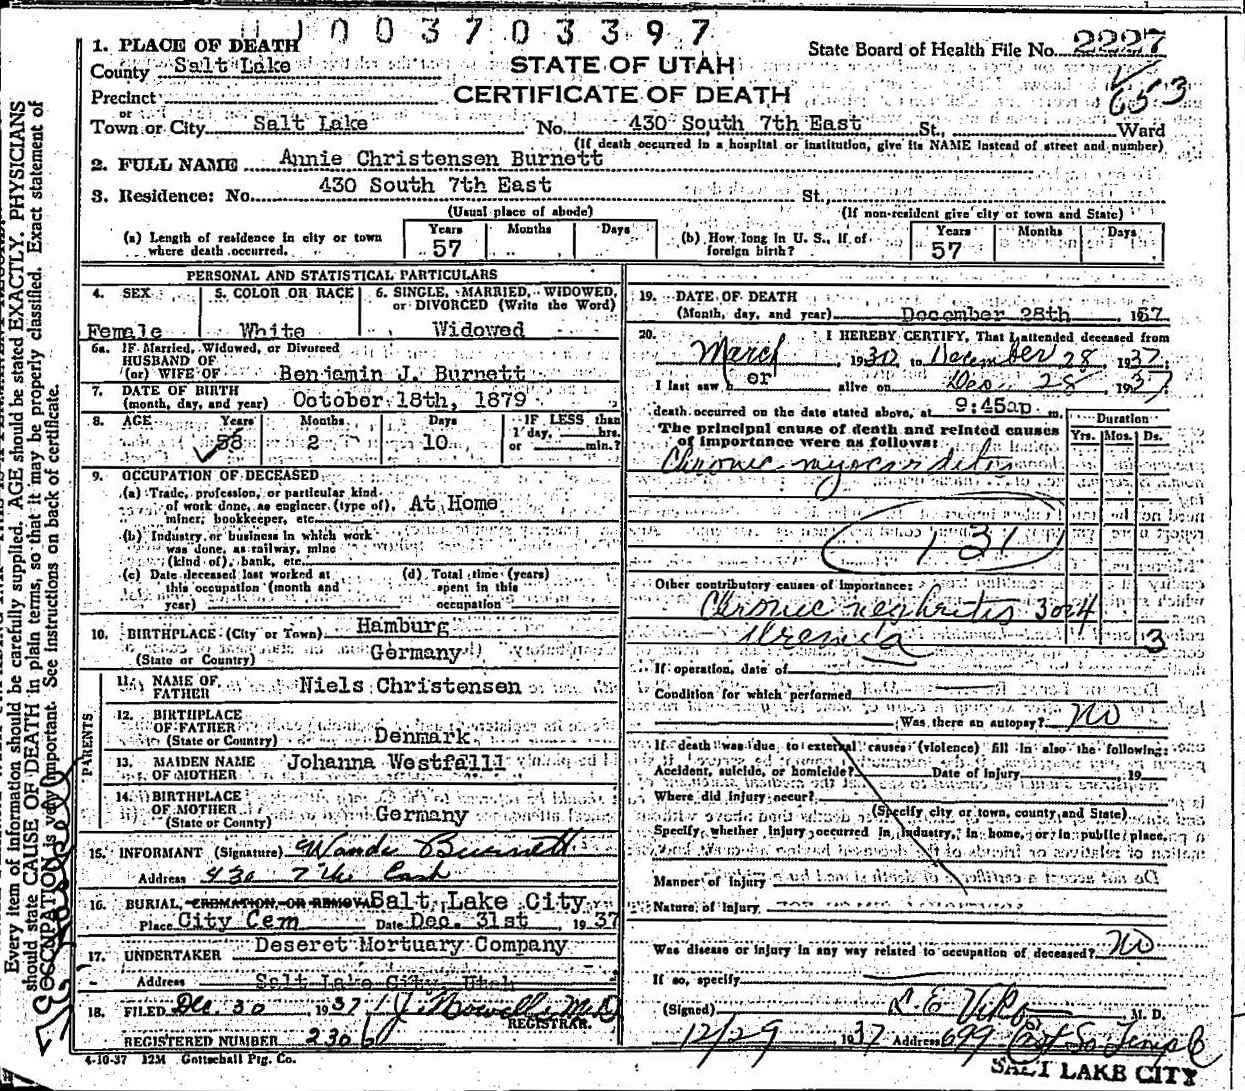 0 0 3 7 0 3 3 9 7
1. PLACE OF DEATH
State Board of Health File No. 2227
County Salt Lake
STATE OF UTAH
Precinct
CERTIFICATE OF DEATH
653
or
Town or City Salt Lake No. 430 South 7th East St., Ward
(If death occurred in a hospital or institution, give its NAME instead of street and number)
2. FULL NAME Annie Christensen Burnett
3. Residence: No. 430 South 7th East St.,
(Usual place of abode) (If non-resident give city or town and State)
(a) Length of residence in city or town where death occurred. Years 57 Months Days
(b) How long in U. S., if of foreign birth? Years 57 Months Days
PERSONAL AND STATISTICAL PARTICULARS
4. SEX Female
5. COLOR OR RACE White
6. SINGLE, MARRIED, WIDOWED, or DIVORCED (Write the Word) Widowed
6a. IF Married, Widowed, or Divorced
HUSBAND OF
(or) WIFE OF Benjamin J. Burnett
7. DATE OF BIRTH
(month, day, and year) October 18th, 1879
8. AGE Years 58 Months 2 Days 10 IF LESS than 1 day, hrs. or min.?
9. OCCUPATION OF DECEASED
(a) Trade, profession, or particular kind
of work done, as engineer (type of), At Home
miner, bookkeeper, etc.
(b) Industry or business in which work
was done, as railway, mine
(kind of), bank, etc.
(c) Date deceased last worked at this occupation (month and year)
(d) Total time (years) spent in this occupation
10. BIRTHPLACE (City or Town) Hamburg
(State or Country) Germany
PARENTS
11. NAME OF FATHER Niels Christensen
12. BIRTHPLACE OF FATHER
(State or Country) Denmark
13. MAIDEN NAME OF MOTHER Johanna Westfalll
14. BIRTHPLACE OF MOTHER
(State or Country) Germany
15. INFORMANT (Signature) Wanda Burnett
Address 430 7 the East
16. BURIAL, CREMATION, OR REMOVAL Salt Lake City
Place City Cem Date Dec. 31st, 1937
17. UNDERTAKER Deseret Mortuary Company
Address Salt Lake City, Utah
18. FILED Dec. 30 1937 M.D.
REGISTRAR.
REGISTERED NUMBER 2306
4-10-37 12M Gottschall Ptg. Co.
19. DATE OF DEATH
(Month, day, and year) December 28th
20. I HEREBY CERTIFY, That I attended deceased from
March , 1930 to December 28, 1937.
I last saw her alive on Dec 28, 1937
death occurred on the date stated above, at 9:45ap m.
The principal cause of death and related causes
of importance were as follows:
Duration
Yrs. Mos. Ds.
Chronic myocarditis
131
Other contributory causes of importance:
Chronic nephritis 3 or 4
Uremia 3
If operation, date of
Condition for which performed
Was there an autopsy? NO
If death was due to external causes (violence) fill in also the following:
Accident, suicide, or homicide? Date of Injury 19
Where did injury occur?
(Specify city or town, county and State)
Specify whether injury occurred in industry, in home, or in public place.
Manner of Injury
Nature of Injury
Was disease or injury in any way related to occupation of deceased? NO
If so, specify
(Signed) L. E. Viko M. D.
12/29 1937 Address 699 East So Temple
SALT LAKE CITY
Every item of information should be carefully supplied. AGE should be stated EXACTLY. PHYSICIANS
should state CAUSE OF DEATH in plain terms, so that it may be properly classified. Exact statement of
OCCUPATION is very important. See instructions on back of certificate.